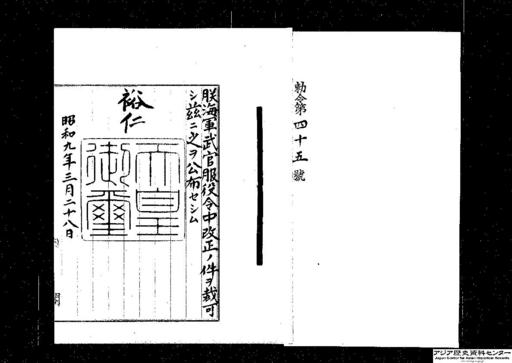 勅令第四十五號
朕海軍武官服役令中改正ノ件ヲ裁可
シ茲ニ之ヲ公布セシム
裕仁
天皇
御璽
昭和九年三月二十八日
アジア歴史資料センター
Japan Center for Asian Historical Records